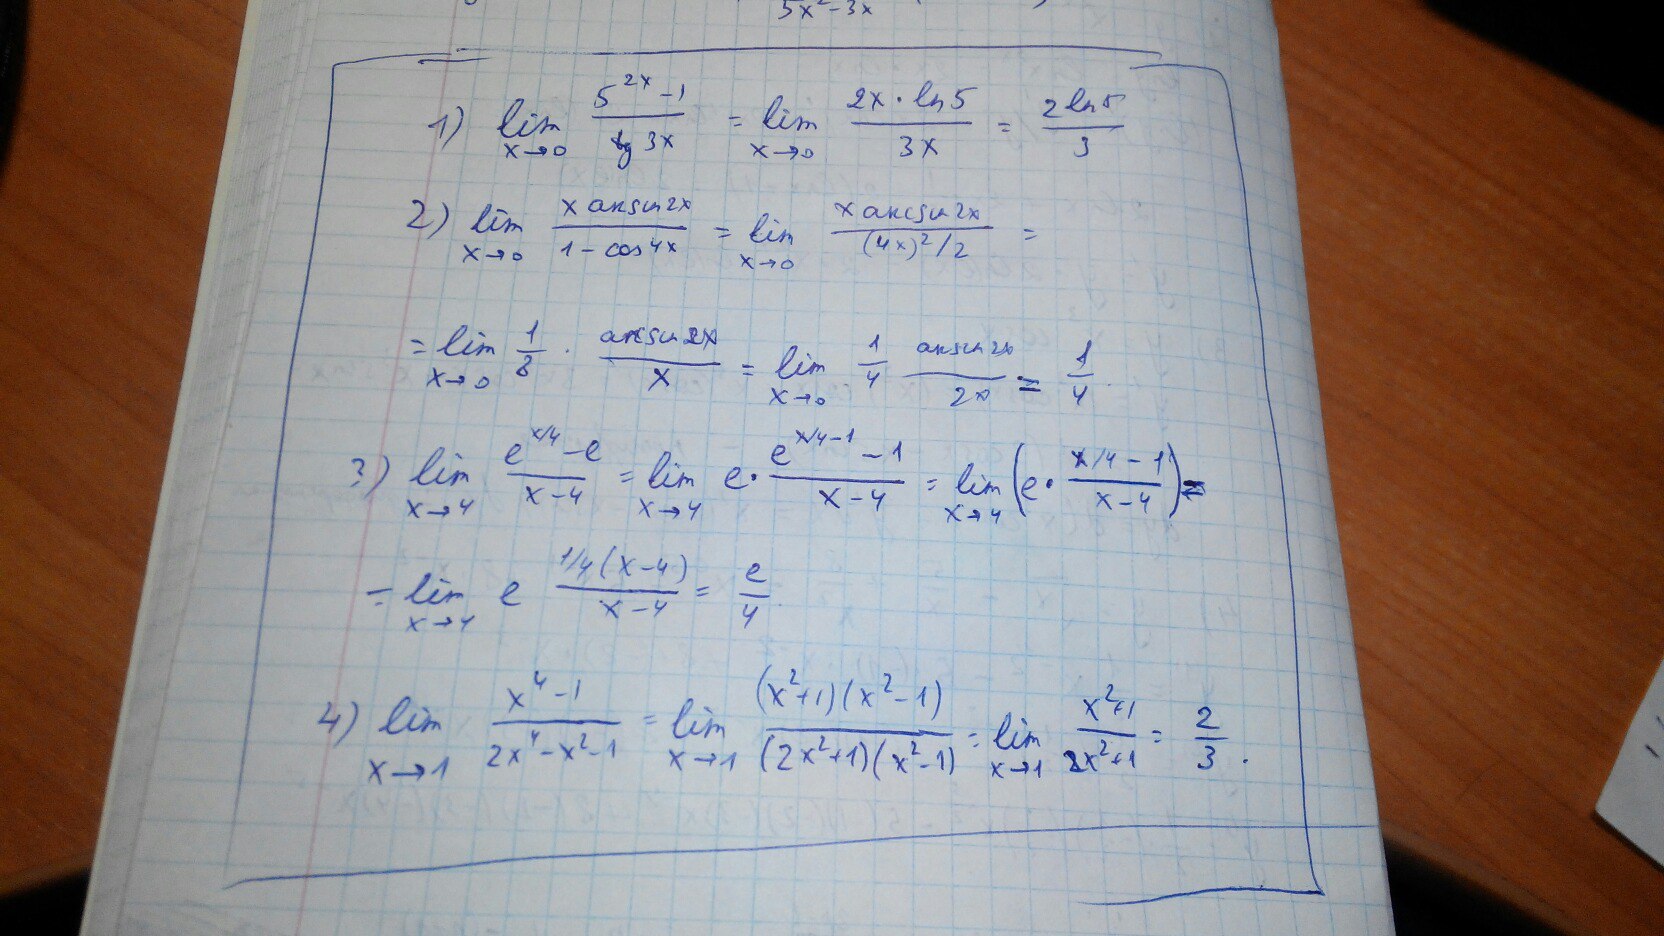 5x²-3x
1) lim x→0 (5^(2x) - 1)/(tg 3x) = lim x→0 (2x · ln5)/(3x) = (2 ln 5)/3
2) lim x→0 (x arcsin 2x)/(1 - cos 4x) = lim x→0 (x arcsin 2x)/((4x)²/2) =
= lim x→0 1/8 · (arcsin 2x)/x = lim x→0 1/4 (arcsin 2x)/(2x) = 1/4
3) lim x→4 (e^(x/4) - e)/(x - 4) = lim x→4 e · (e^(x/4-1) - 1)/(x - 4) = lim x→4 (e · (x/4 - 1)/(x - 4)) =
= lim x→4 e (1/4 (x - 4))/(x - 4) = e/4
4) lim x→1 (x⁴ - 1)/(2x⁴ - x² - 1) = lim x→1 ((x²+1)(x²-1))/((2x²+1)(x²-1)) = lim x→1 (x²+1)/(2x²+1) = 2/3.